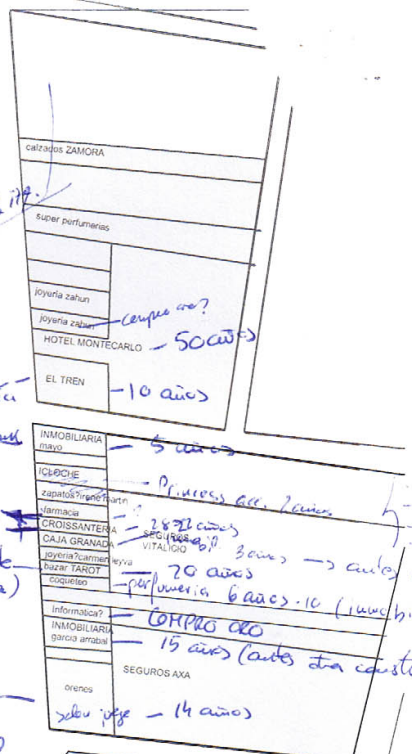 calzados ZAMORA
super perfumerias
joyería zahun
joyería zahun compro oro?
HOTEL MONTECARLO – 50 años
EL TREN – 10 años
INMOBILIARIA
mayo – 5 años
ICLOCHE
Princesas acc. 2 años
zapatos?irene martin
farmacia – ?
CROISSANTERIA
CAJA GRANADA
SEGUROS
VITALICIO
3 años → antes
joyería?carmen leyva
bazar TAROT – 20 años
coqueteo – perfumería 6 años.10 (inmob.
Informatica? – COMPRO ORO
INMOBILIARIA
garcia arrabal – 15 años (antes otra const
SEGUROS AXA
orenes
salón juego – 14 años